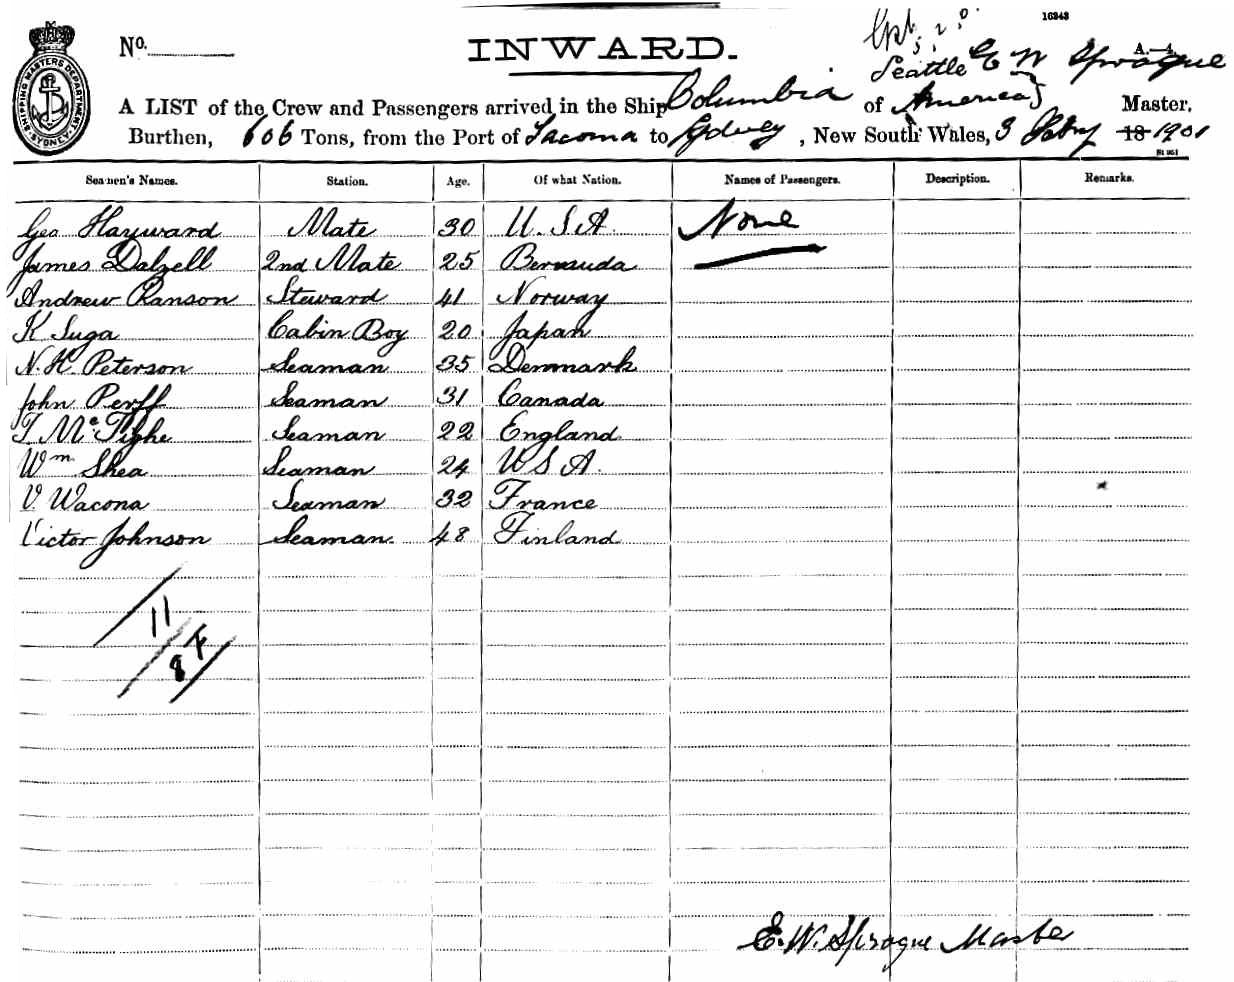 16843
No.
INWARD.
A.—4.
Seattle E W Sprague
A LIST of the Crew and Passengers arrived in the Ship Columbia of America Master,
Burthen, 606 Tons, from the Port of Tacoma to Sydney, New South Wales, 3 Febry 18 1901
SHIPPING MASTERS DEPARTMENT SYDNEY
Seamen's Names. Station. Age. Of what Nation. Names of Passengers. Description. Remarks.
Geo Hayward Mate 30 U.S.A. None
James Dalzell 2nd Mate 25 Bermuda
Andrew Ranson Steward 41 Norway
K Suga Cabin Boy 20 Japan
N. H. Peterson Seaman 35 Denmark
John Perff Seaman 31 Canada
T McTighe Seaman 22 England
Wm Shea Seaman 24 U S A.
V. Wacona Seaman 32 France
Victor Johnson Seaman. 48 Finland
11
8 F
E. W. Sprague Master